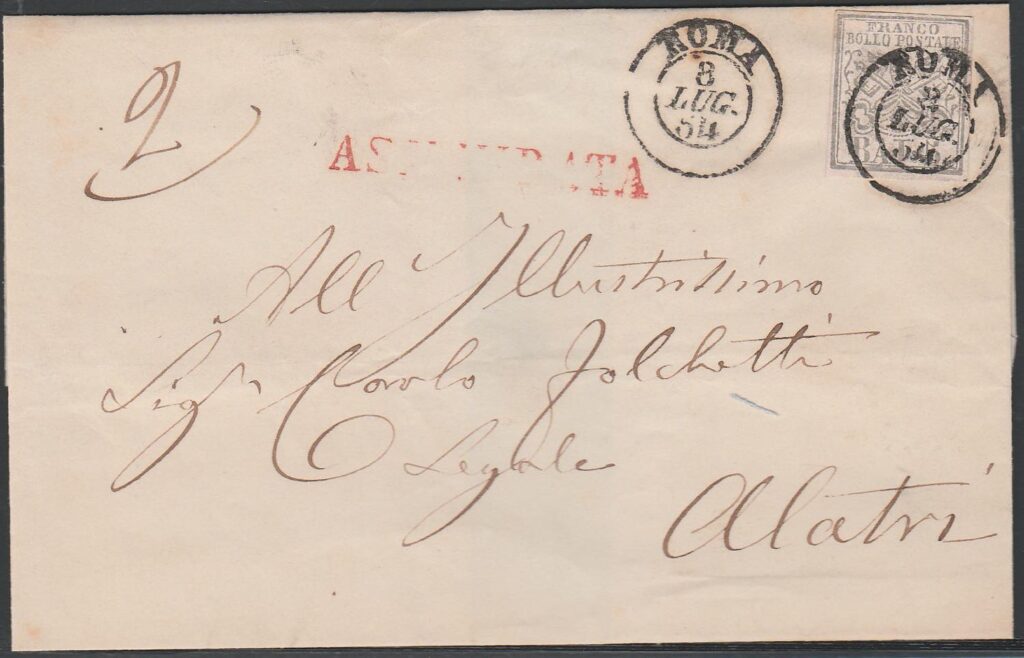 2
ROMA
8
LUG.
54
FRANCO
BOLLO POSTALE
BAJ
ROMA
LUG.
54
ASSICURATA
All Illustrissimo
Sigr Carlo Jolchetti
Legale
Alatri